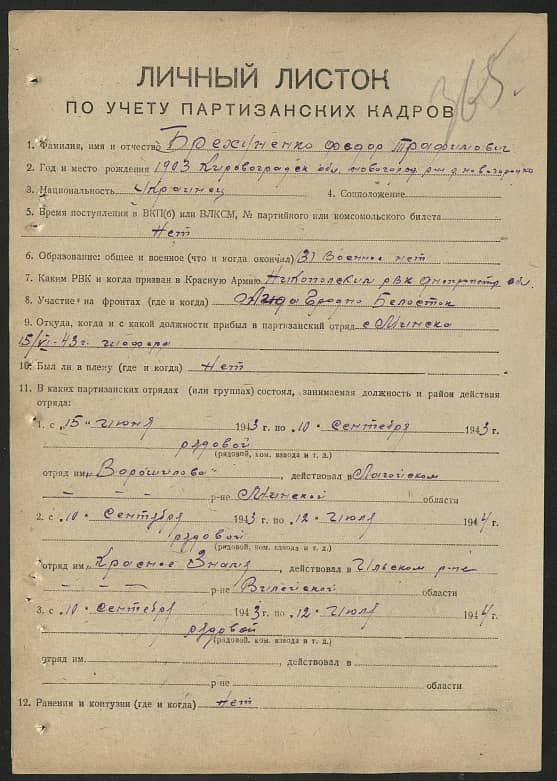 365.
ЛИЧНЫЙ ЛИСТОК
ПО УЧЕТУ ПАРТИЗАНСКИХ КАДРОВ
1. Фамилия, имя и отчество Брехуненко Федор Трафимович
2. Год и место рождения 1903 Кировоградск обл. Новогород р-н д. Новгородка
3. Национальность Украинец 4. Соцположение
5. Время поступления в ВКП(б) или ВЛКСМ, № партийного или комсомольского билета
Нет
6. Образование: общее и военное (что и когда окончил) 3) Военное нет
7. Каким РВК и когда призван в Красную Армию Никопольским рвк Днепропетр. обл.
8. Участие на фронтах (где и когда) Гродно Белосток
9. Откуда, когда и с какой должности прибыл в партизанский отряд с Минска
15/VI-43 г. шофера
10. Был ли в плену (где и когда) Нет
11. В каких партизанских отрядах (или группах) состоял, занимаемая должность и район действия
отряда:
1. с „15" Июня 1943 г. по „10" Сентября 1943 г.
рядовой
(рядовой, ком. взвода и т. д.)
отряд им. Ворошилова, действовал в Лагойском
р-не Минской области
2. с „10" Сентября 1943 г. по „12" Июля 1944 г.
рядовой
(рядовой, ком. взвода и т. д.)
отряд им. Красное Знамя, действовал в Ильском р-не
р-не Вилейской области
3. с „10" Сентября 1943 г. по „12" Июля 1944 г.
рядовой
(рядовой, ком. взвода и т. д.)
отряд им. , действовал в
р-не области
12. Ранения и контузии (где и когда) Нет